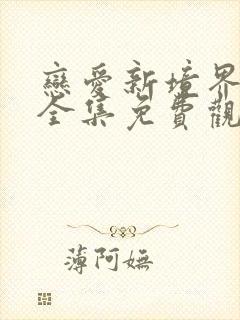 戀愛新境界
全集免費觀
薄阿嫵